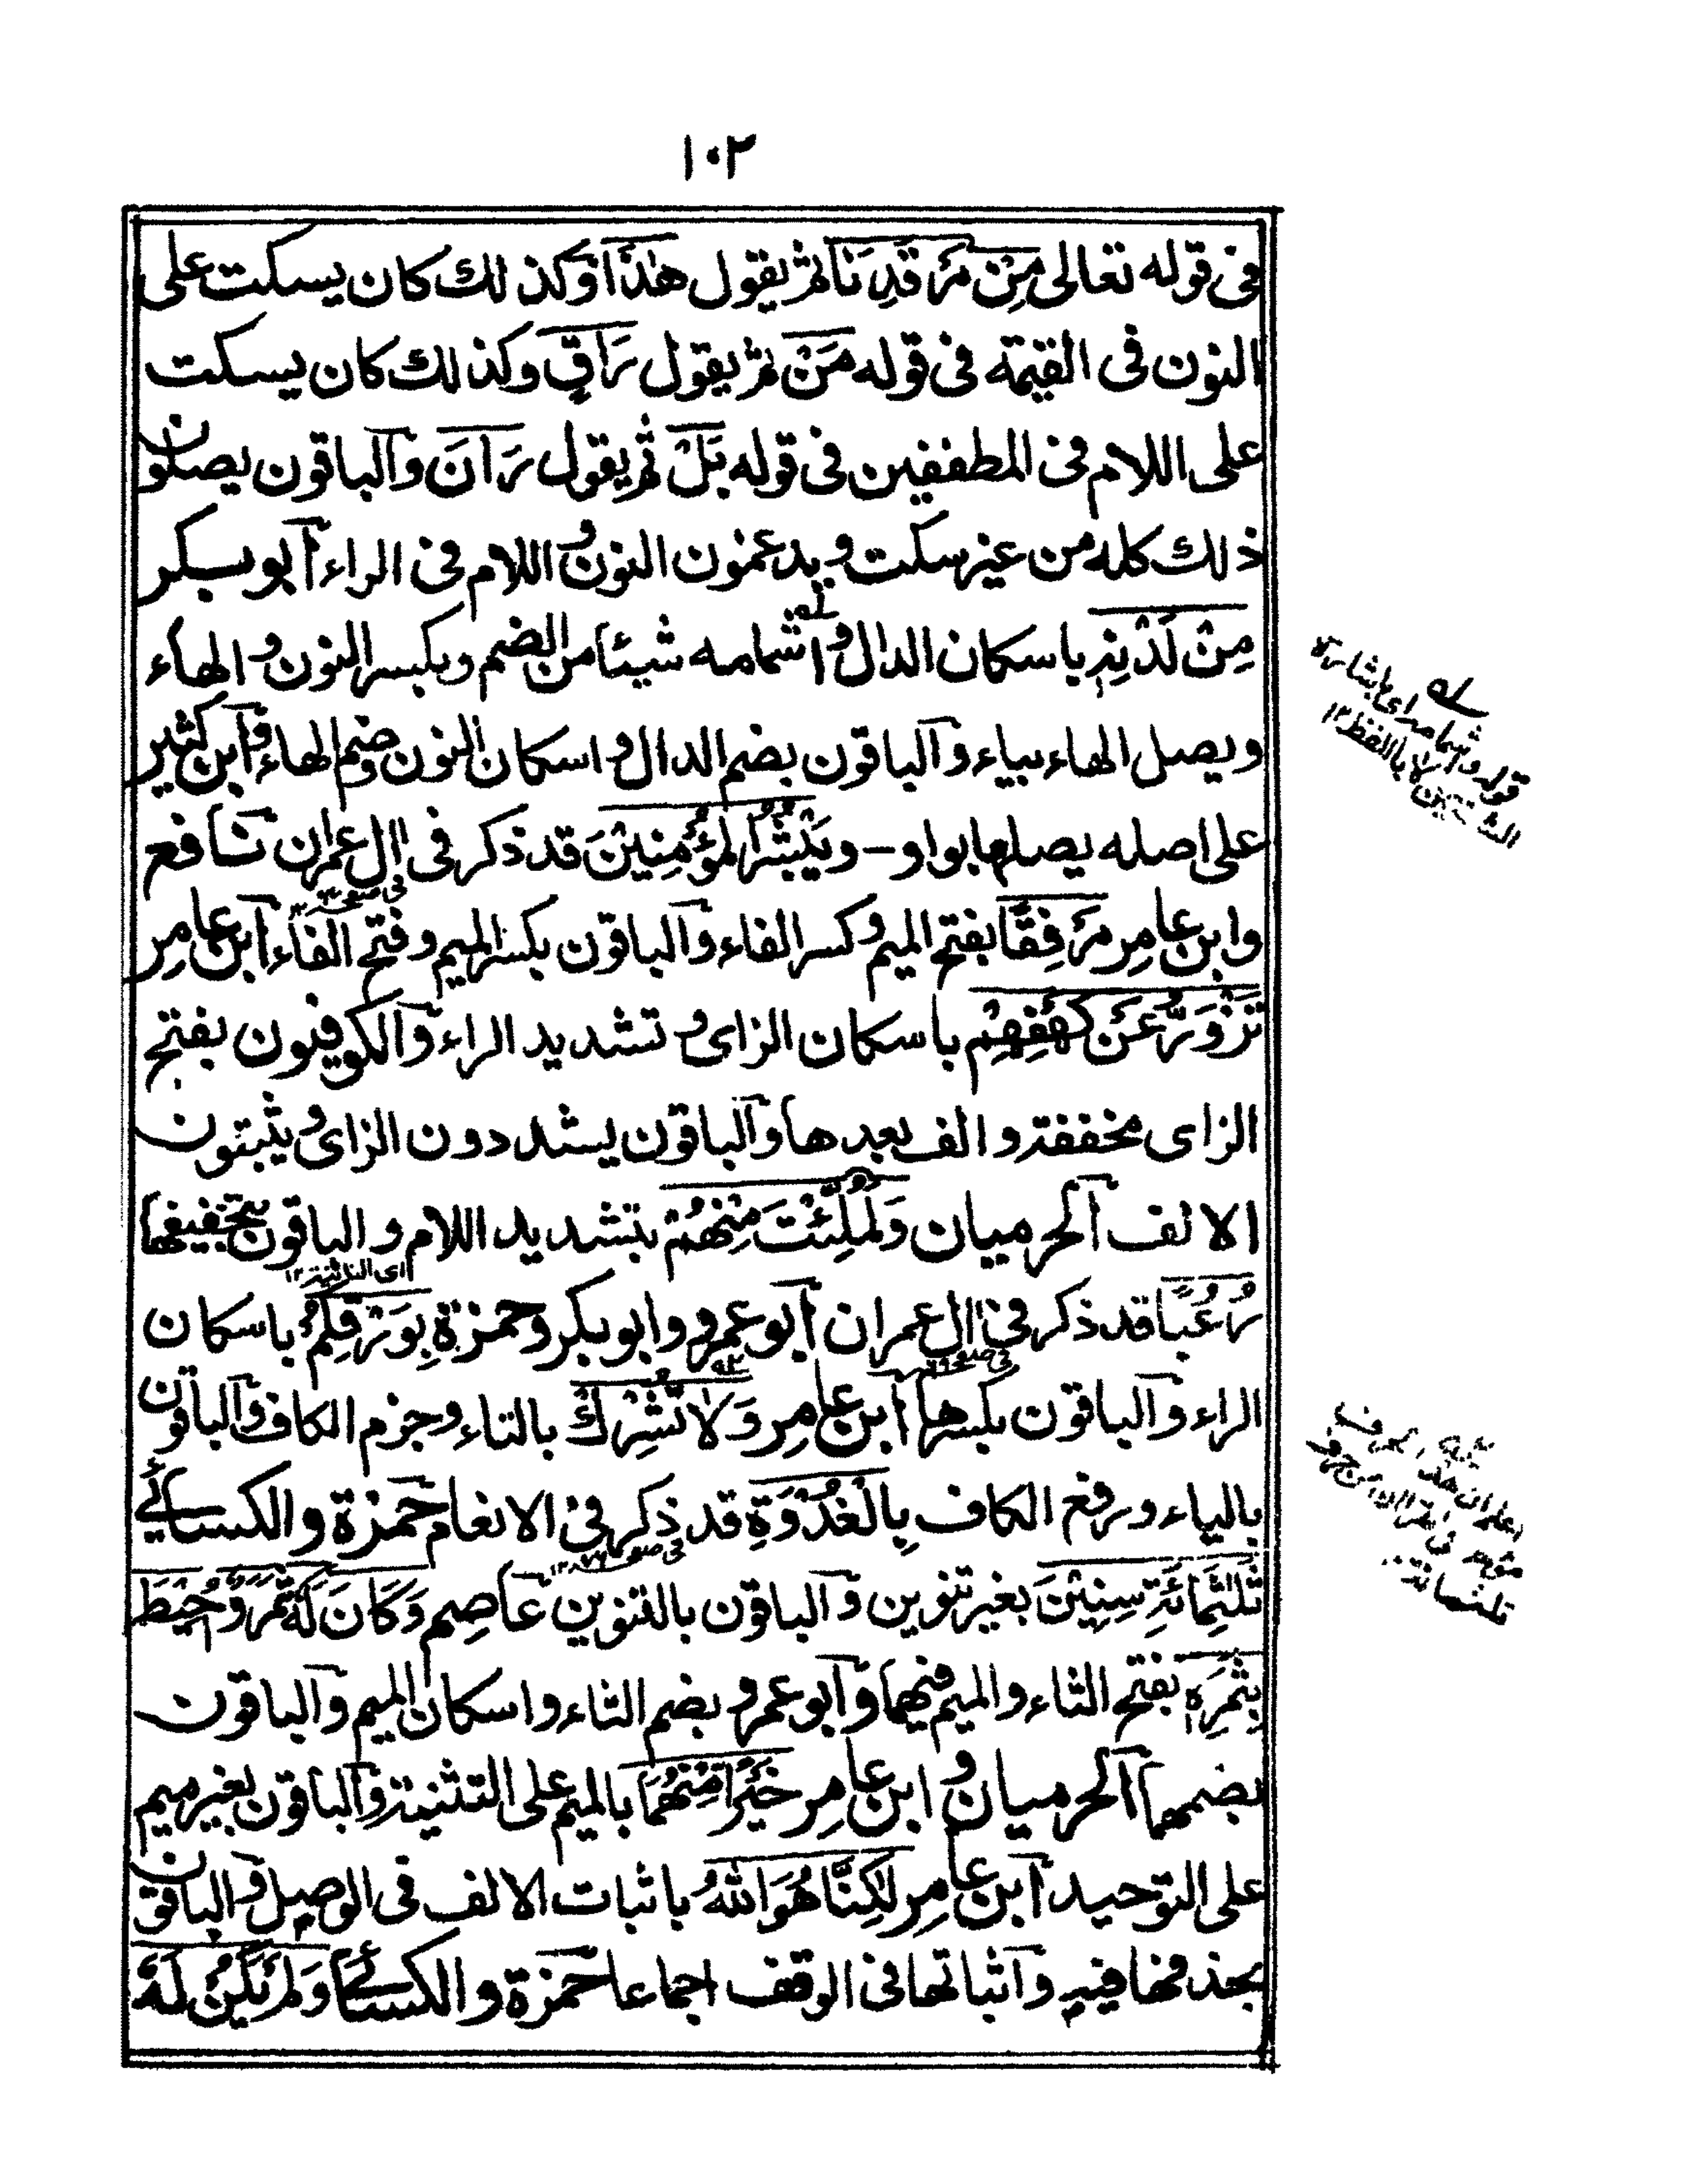 ١٠٢
فى قوله تعالى مِنْ مَّرْقَدِنَا ثم يقول هٰذَا وكذلك كان يسكت على
النون فى القيمة فى قوله مَنْ ثم يقول رَاقٍ وكذلك كان يسكت
على اللام فى المطففين فى قوله بَلْ ثم يقول رَانَ والباقون يصلون
ذلك كله من غير سكت ويدغمون النون واللام فى الراء ابو بكر
مِنْ لَدْنِهٖ باسكان الدال واشمامه شيئا من الضم وبكسر النون والهاء
ويصل الهاء بياء والباقون بضم الدال واسكان النون وضم الهاء وابن كثير
على اصله يصلها بواو – وَيَبْشُرُ الْمُؤْمِنِيْنَ قد ذكر فى ال عمران نافع
وابن عامر مَرْفِقًا بفتح الميم وكسر الفاء والباقون بكسر الميم وفتح الفاء ابن عامر
تَزْوَرُّ عَنْ كَهْفِهِمْ باسكان الزاى وتشديد الراء والكوفيون بفتح
الزاى مخففة والف بعدها والباقون يشددون الزاى ويثبتون
الالف الحرميان وَلَمُلِّئْتَ مِنْهُمْ بتشديد اللام والباقون بتخفيفها
رُعُبًا قد ذكر فى ال عمران ابو عمرو وابو بكر وحمزة بِوَرْقِكُمْ باسكان
الراء والباقون بكسرها ابن عامر وَلَا تُشْرِكْ بالتاء وجزم الكاف والباقون
بالياء ورفع الكاف بِالْغُدْوَةِ قد ذكر فى الانعام حمزة والكسائى
ثَلٰثَمِائَةِ سِنِيْنَ بغير تنوين والباقون بالتنوين عاصم وَكَانَ لَهٗ ثَمَرٌ وَاُحِيْطَ
بِثَمَرِهٖ بفتح الثاء والميم فيهما وابو عمرو بضم الثاء واسكان الميم والباقون
بضمهما الحرميان وابن عامر خَيْرًا مِّنْهُمَا بالميم على التثنية والباقون بغير ميم
على التوحيد ابن عامر لٰكِنَّا هُوَ اللّٰهُ باثبات الالف فى الوصل والباقون
بحذفها فيه واثباتها فى الوقف اجماعا حمزة والكسائى وَلَمْ يَكُنْ لَّهٗ
قوله واشمامه اى باشارة
الشفتين لا باللفظ ١٢